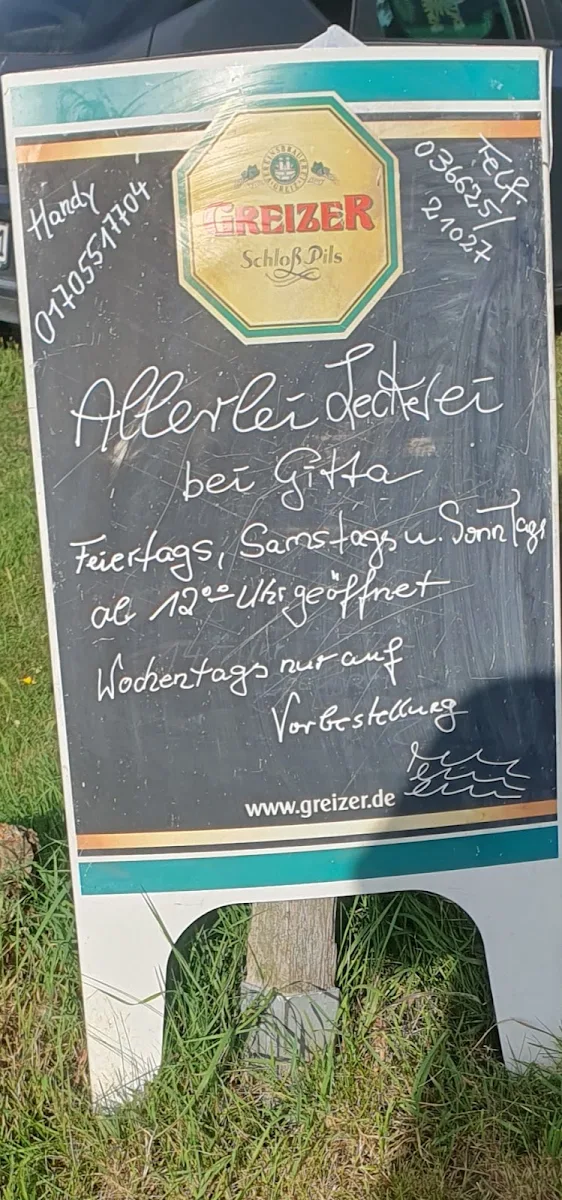 Handy
01705517704
Telf.
036625/
21027
GREIZER
Schloß Pils
Allerlei Leckerei
bei Gitta
Feiertags, Samstags u. Sonntags
ab 12⁰⁰ Uhr geöffnet
Wochentags nur auf
Vorbestellung
www.greizer.de